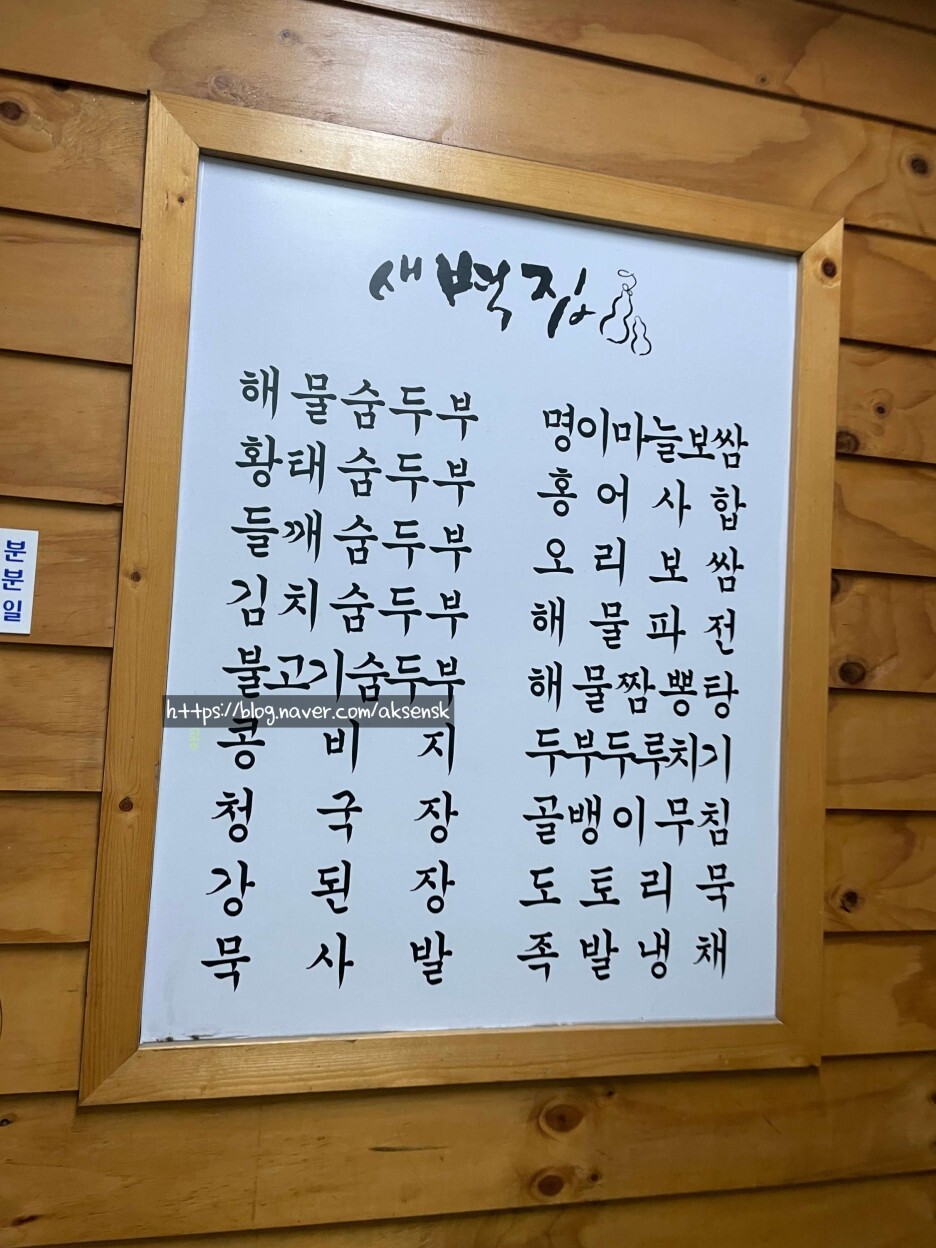 새벽집
해물숨두부
황태숨두부
들깨숨두부
김치숨두부
불고기숨두부
콩비지
청국장
강된장
묵사발
명이마늘보쌈
홍어사합
오리보쌈
해물파전
해물짬뽕탕
두부두루치기
골뱅이무침
도토리묵
족발냉채
분
분
일
https://blog.naver.com/aksensk